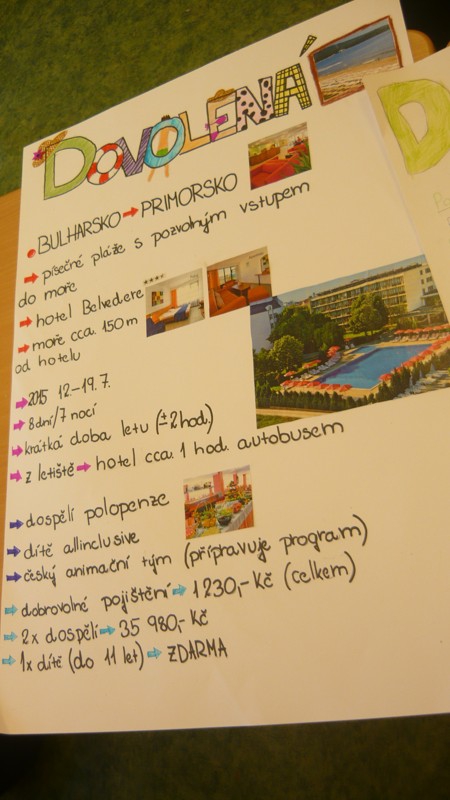 DOVOLENÁ
BULHARSKO → PRIMORSKO
→ písečné pláže s pozvolným vstupem
do moře
→ hotel Belvedere
→ moře cca. 150 m
od hotelu
→ 2015 12.-19.7.
→ 8 dní/7 nocí
→ krátká doba letu (±2 hod.)
→ z letiště → hotel cca. 1 hod. autobusem
→ dospělí polopenze
→ dítě allinclusive
→ český animační tým (připravuje program)
→ dobrovolné pojištění → 1230,- Kč (celkem)
→ 2x dospělí → 35 980,- Kč
→ 1x dítě (do 11 let) → ZDARMA
D